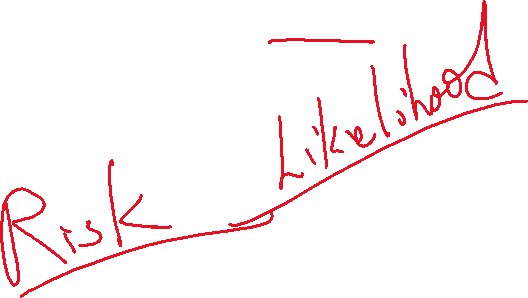 Risk Likelihood